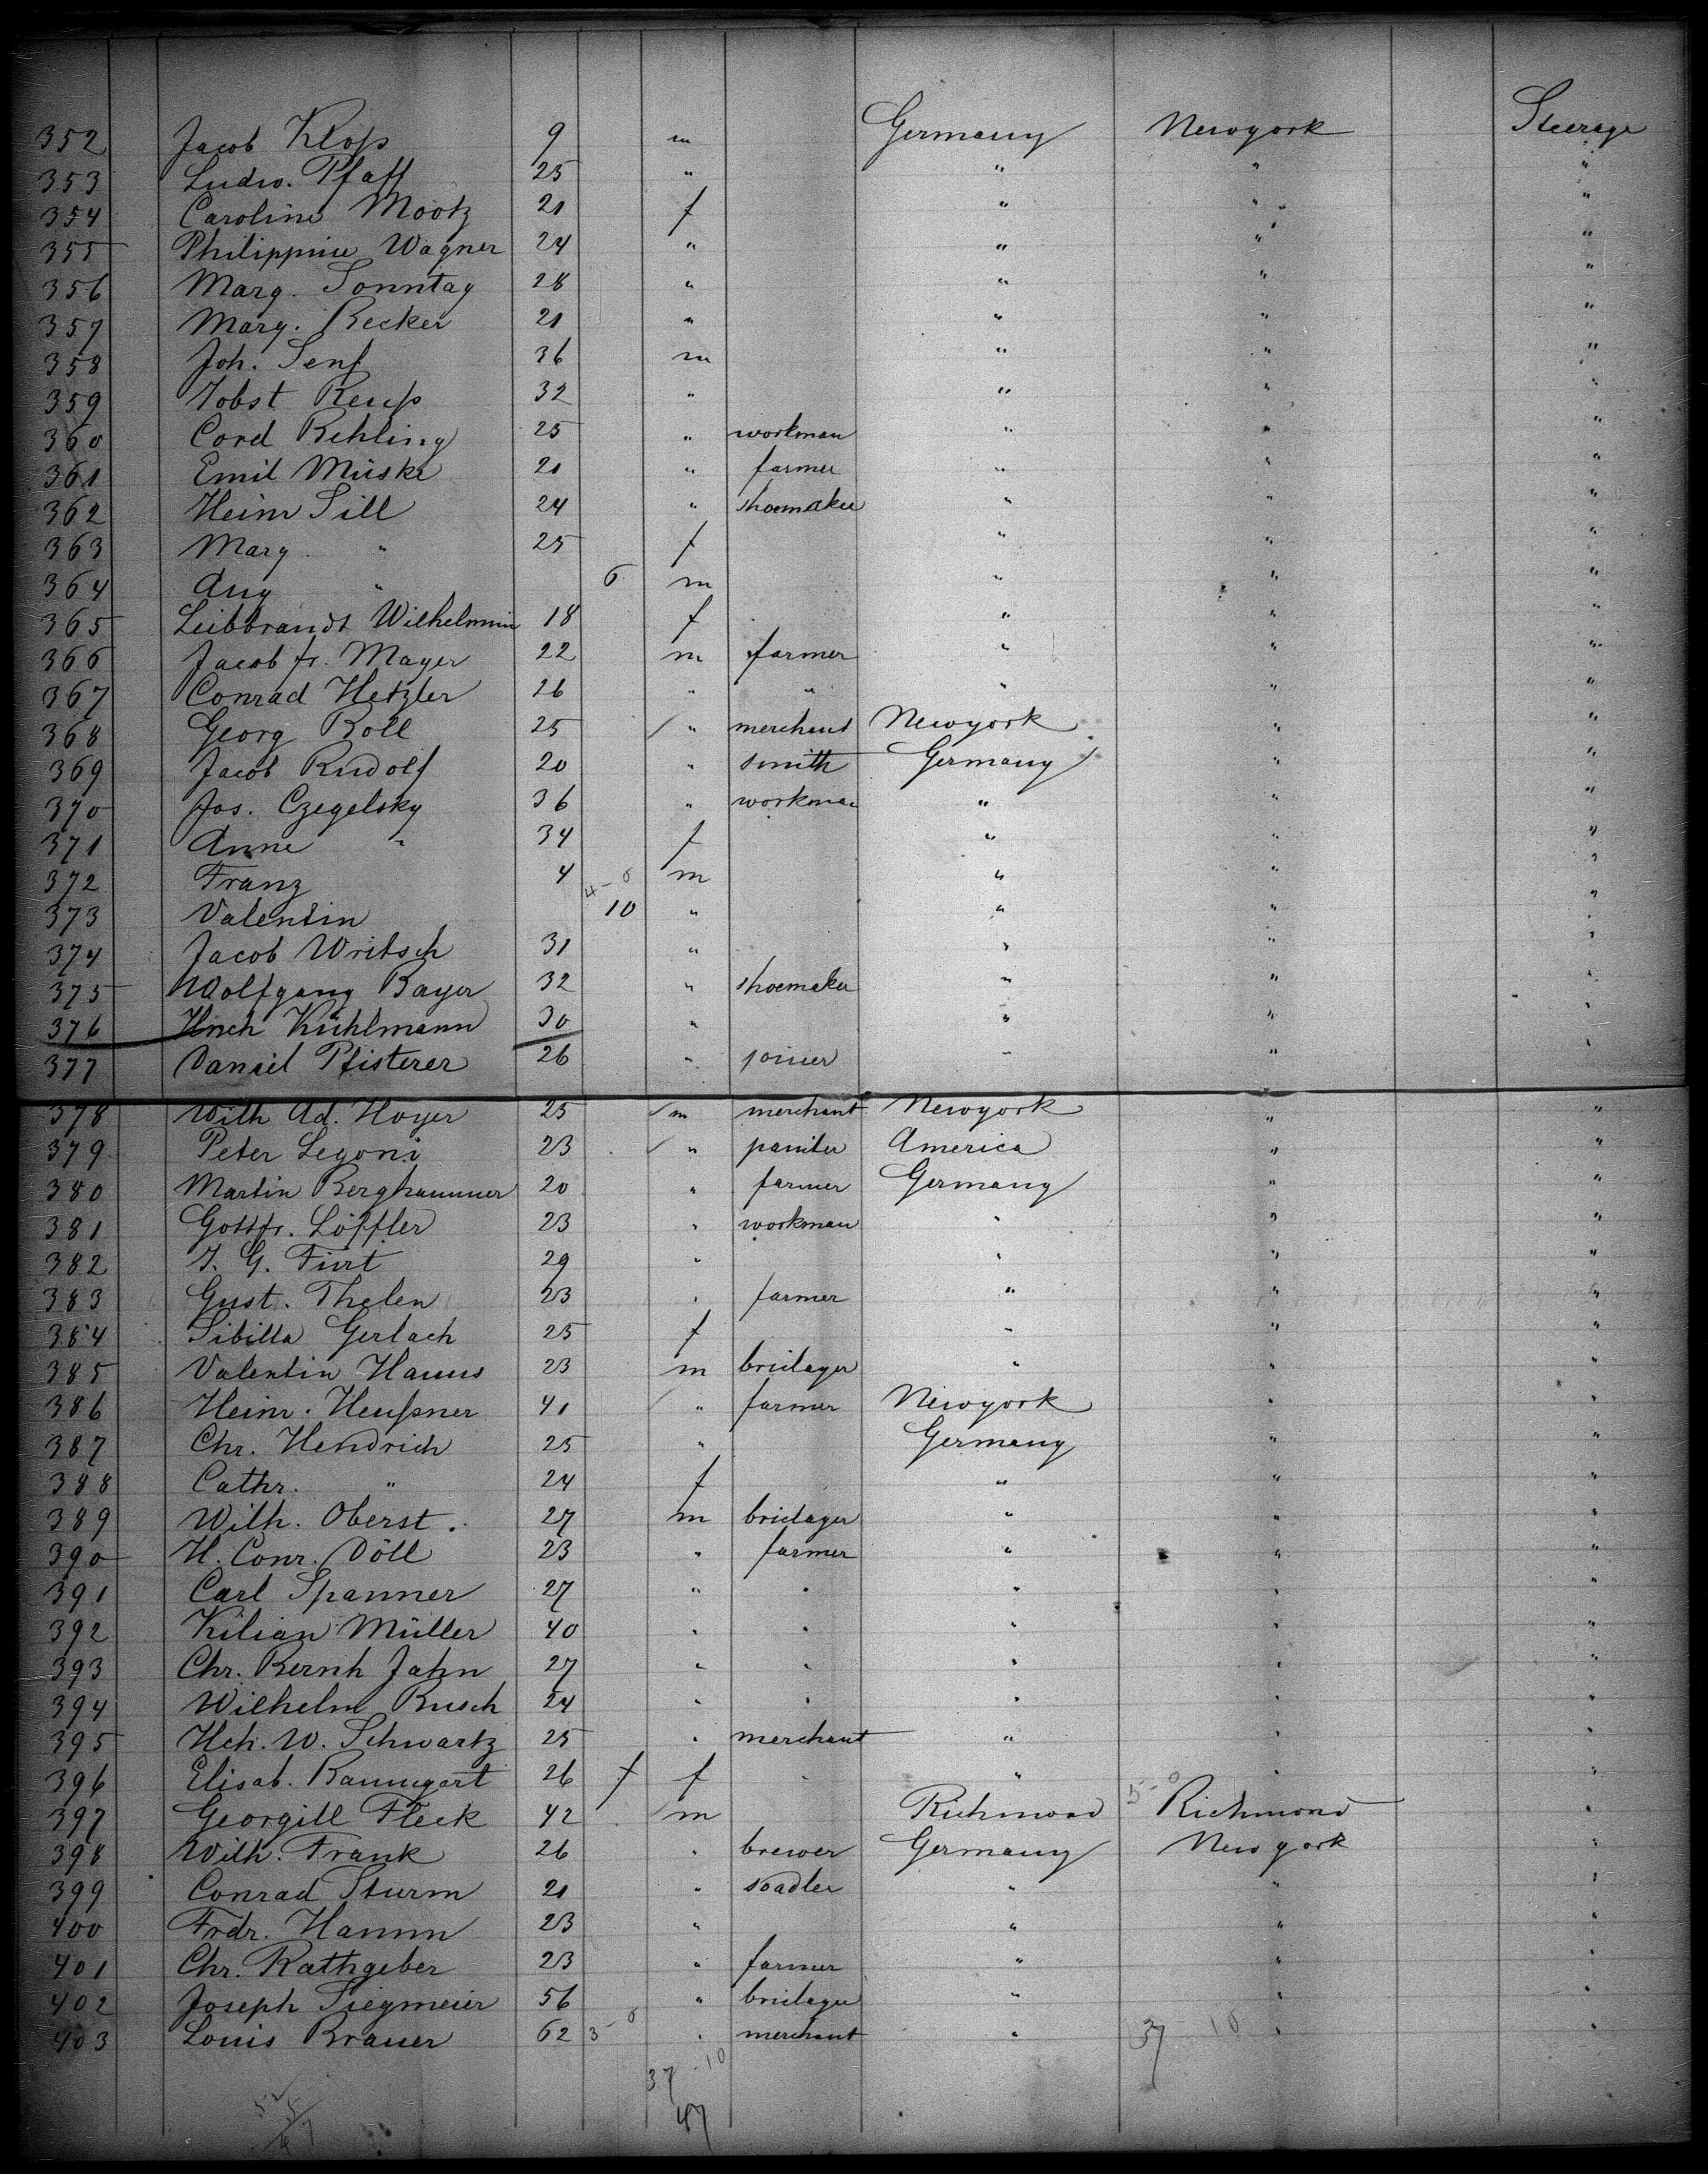 352 Jacob Kloß 9 m Germany Newyork Steerage
353 Ludw. Pfaff 25 " " " "
354 Caroline Mootz 21 f " " "
355 Philippine Wagner 24 " " " "
356 Marg. Sonntag 28 " " " "
357 Marg. Becker 21 " " " "
358 Joh. Senf 36 m " " "
359 Jobst Reuß 32 " " " "
360 Cord Behling 25 " workman " " "
361 Emil Müske 21 " farmer " " "
362 Heinr Sill 24 " shoemaker " " "
363 Marg. " 25 f " " "
364 Aug " 6 m " " "
365 Leibbrandt Wilhelmin 18 f " " "
366 Jacob fr. Mayer 22 m farmer " " "
367 Conrad Hetzler 26 " " " " "
368 Georg Roll 25 " merchant Newyork " "
369 Jacob Rudolf 20 " smith Germany " "
370 Jos. Czegelsky 36 " workman " " "
371 Anne " 34 f " " "
372 Franz 4 4-0 m " " "
373 Valentin 10 " " " "
374 Jacob Writsch 31 " " " "
375 Wolfgang Bayer 32 " shoemaker " " "
376 Hnch Kühlmann 30 " " " "
377 Daniel Pfisterer 26 " joiner " " "
378 Wilh Ad. Hoyer 25 m merchant Newyork " "
379 Peter Legoni 23 " painter America " "
380 Martin Berghammer 20 " farmer Germany " "
381 Gottfr. Löffler 23 " workman " " "
382 J. G. Fürt 29 " " " "
383 Gust. Thelen 23 " farmer " " "
384 Sibilla Gerlach 25 f " " "
385 Valentin Hanns 23 m bricklayer " " "
386 Heinr. Heußner 41 " farmer Newyork " "
387 Chr. Hendrich 25 " Germany " "
388 Cathr. " 24 f " " "
389 Wilh. Oberst. 27 m briclager " " "
390 H. Conr. Döll 23 " farmer " " "
391 Carl Spanner 27 " " " " "
392 Kilian Müller 40 " " " " "
393 Chr. Bernh Jahn 27 " " " " "
394 Wilhelm Busch 24 " " " " "
395 Hch. W. Schwartz 25 " merchant " " "
396 Elisab. Baumgart 26 f f " " " "
397 Georgill Fleck 42 m Richmond 5-0 Richmond "
398 Wilh. Frank 26 " brewer Germany New york "
399 Conrad Sturm 21 " soadler " " "
400 Frdr. Hamm 23 " " " "
401 Chr. Rathgeber 23 " farmer " " "
402 Joseph Siegmeier 56 " briclager " " "
403 Louis Brauer 62 3-0 " merchant " 37 10 " "
37-10
47